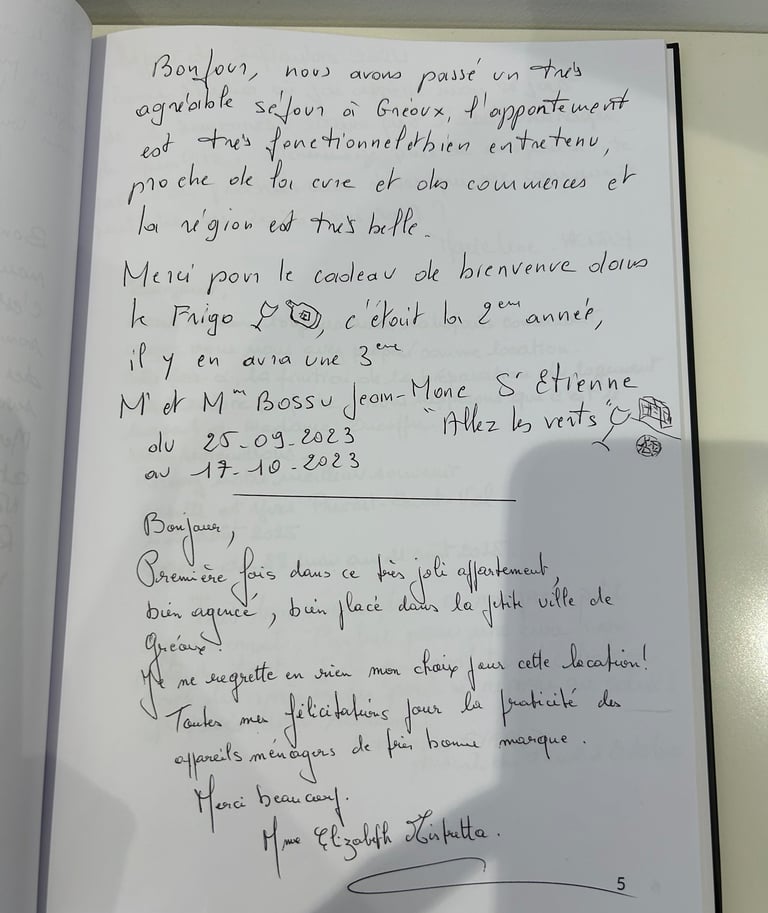 Bonjour, nous avons passé un très
agréable séjour à Gréoux, l'appartement
est très fonctionnel et bien entretenu,
proche de la cure et des commerces et
la région est très belle.
Merci pour le cadeau de bienvenue dans
le Frigo, c'était la 2eme année,
il y en aura une 3eme
Mr et Mme BOSSU Jean-Marc St Etienne
"Allez les verts"
du 25-09-2023
au 17-10-2023
Bonjour,
Première fois dans ce très joli appartement,
bien agencé, bien placé dans la petite ville de
Gréoux.
Je ne regrette en rien mon choix pour cette location!
Toutes mes félicitations pour la praticité des
appareils ménagers de très bonne marque.
Merci beaucoup.
Mme Elizabeth Mistretta.
5